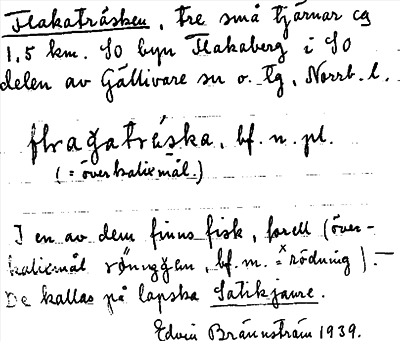 Flakaträsken, tre små tjärnar cg
1,5 km. SO byn Flakaberg i SO
delen av Gällivare sn o. tg, Norrb. l.
flragatráska, bf. n. pl.
(= överkalixmål.)
I en av dem finns fisk, forell (över-
kalixmål rönıggen, bf. m. = x rödning). —
De kallas på lapska Satikjaure.
Edvin Brännström 1939.